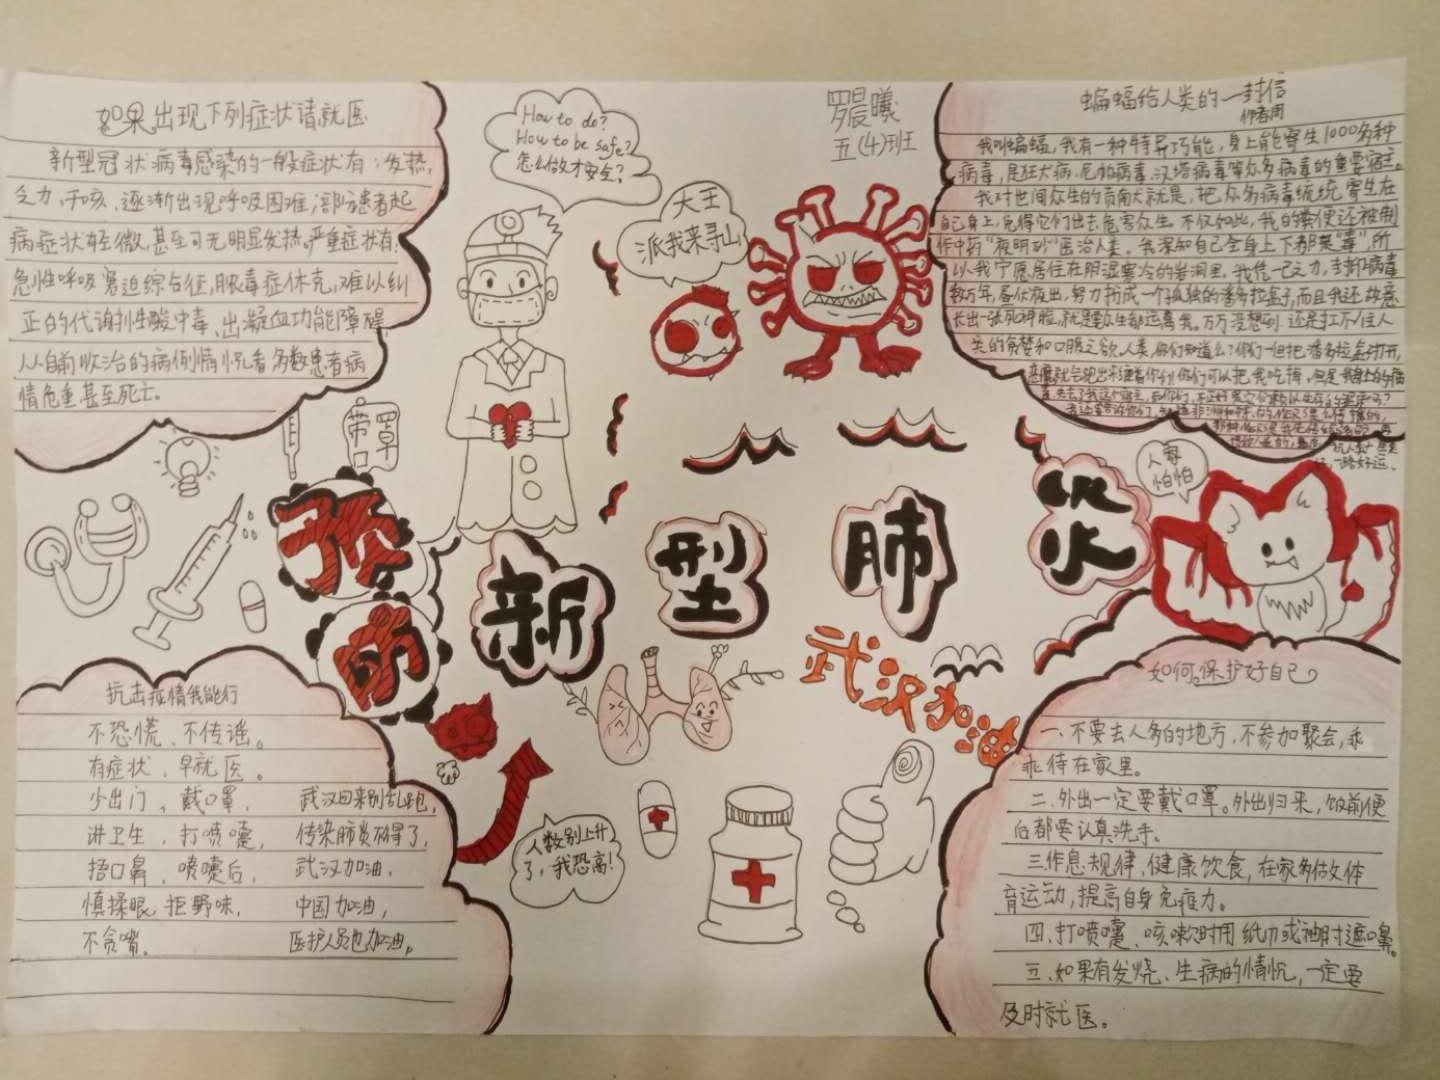 如果出现下列症状请就医
新型冠状病毒感染的一般症状有：发热，
乏力、干咳、逐渐出现呼吸困难，部分患者起
病症状轻微，甚至可无明显发热。严重症状有：
急性呼吸窘迫综合征，脓毒症休克，难以纠
正的代谢性酸中毒、出凝血功能障碍
从目前收治的病例情况看多数患者病
情危重甚至死亡。
How to do?
How to be safe?
怎么做才安全？
大王
派我来寻山
罗晨曦
五(4)班
蝙蝠给人类的一封信
作者周
我叫蝙蝠，我有一种特异巧能，身上能寄生1000多种
病毒，是狂犬病、尼帕病毒、汉塔病毒等众多病毒的重要宿主。
我对世间众生的贡献就是，把众多病毒统统寄生在
自己身上，免得它们出去危害众生。不仅如此，我的粪便还被制
作中药“夜明砂”医治人类。我深知自己全身上下都是“毒”，所
以我宁愿居住在阴湿寒冷的岩洞里，我凭一己之力，封印病毒
数万年，昼伏夜出，努力扮成一个孤独的潘多拉盒子，而且我还故意
长出一张死神脸，就是要众生都远离我。万万没想到，还是扛不住人
类的贪婪和口腹之欲，人类，你们知道么？你们一但把潘多拉盒打开，
带口罩
人每
怕怕
预防
新型肺炎
武汉加油
抗击疫情我能行
不恐慌、不传谣。
有症状，早就医。
少出门，戴口罩， 武汉回来别乱跑，
讲卫生，打喷嚏， 传染肺炎不得了，
捂口鼻，喷嚏后， 武汉加油，
慎揉眼，拒野味， 中国加油，
不贪嘴。 医护人员也加油。
人数别上升
了，我恐高！
如何保护好自己
一、不要去人多的地方，不参加聚会，乖
乖待在家里。
二、外出一定要戴口罩。外出归来，饭前便
后都要认真洗手。
三、作息规律，健康饮食，在家多做体
育运动，提高自身免疫力。
四、打喷嚏、咳嗽时用纸巾或袖肘遮口鼻。
五、如果有发烧、生病的情况，一定要
及时就医。